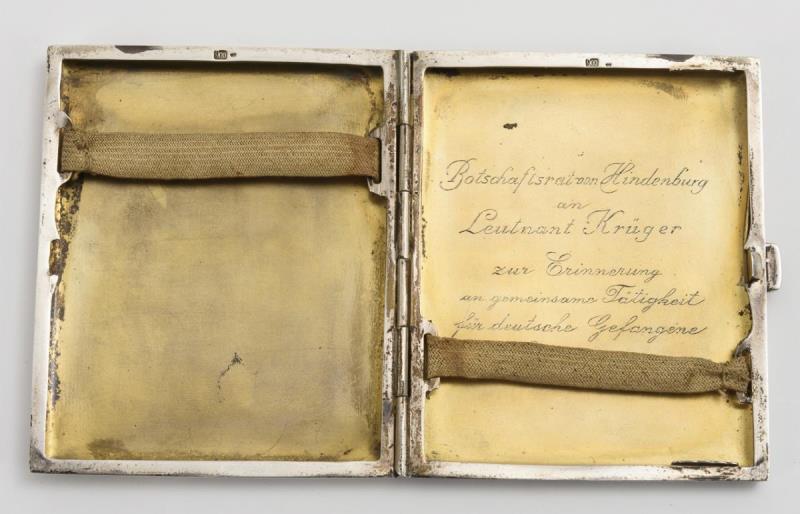 Botschaftsrat von Hindenburg
an
Leutnant Krüger
zur Erinnerung
an gemeinsame Tätigkeit
für deutsche Gefangene